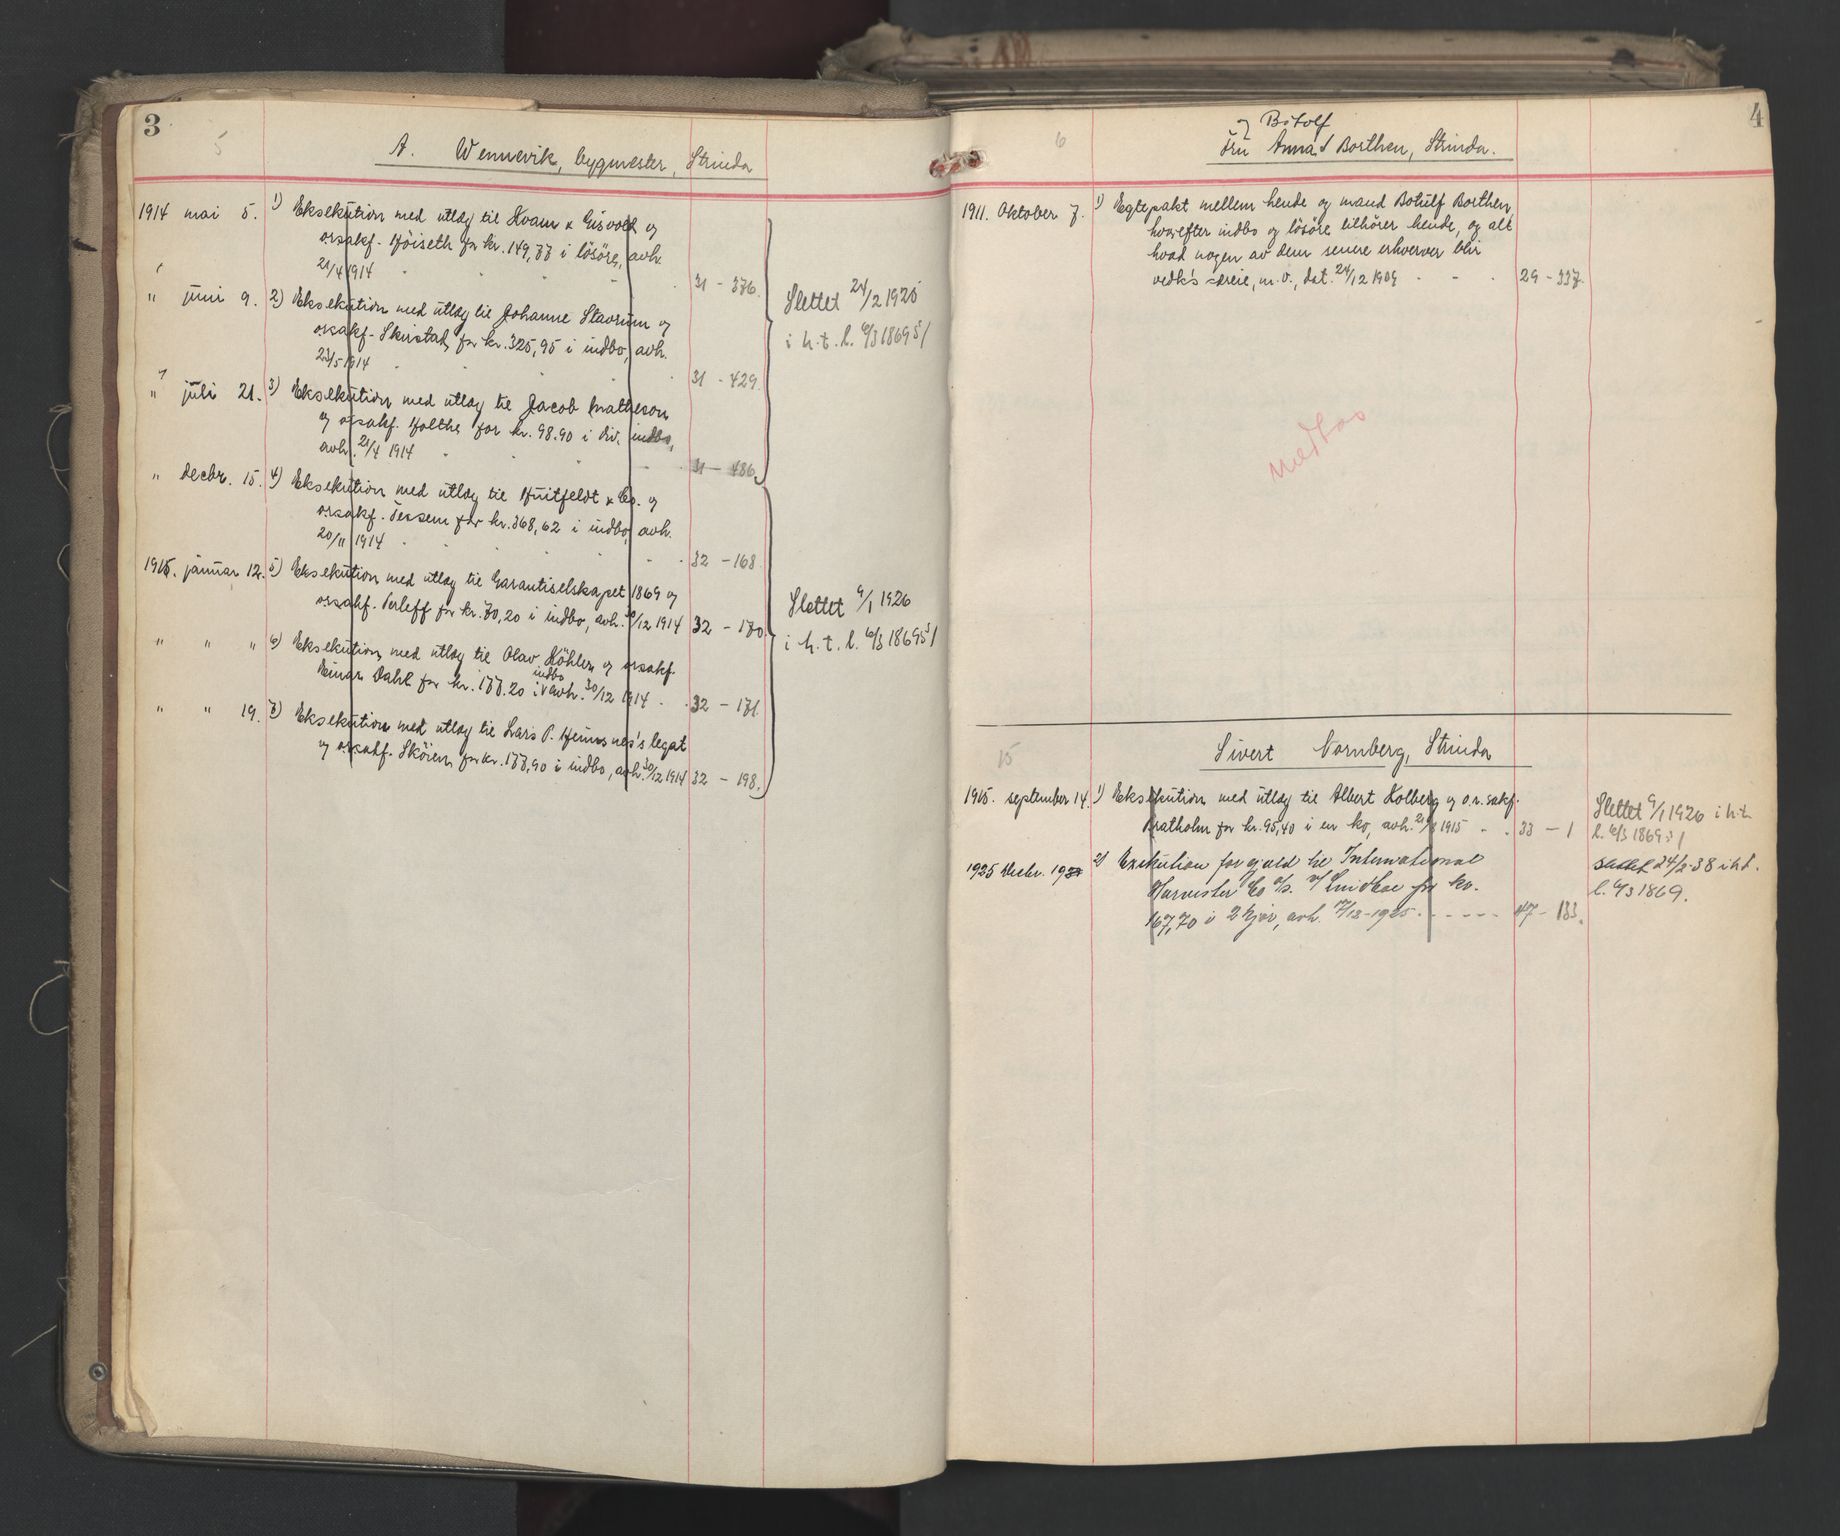 3
5
A. Wennevik, bygmester, Strinda
1914 mai 5. 1) Eksekution med utlæg til Kvam & Gisvold og
orsakf. Höiseth for kr. 149,77 i lösöre, avh.
21/4 1914 31 - 376.
" juni 9. 2) Eksekution med utlæg til Johanne Stavrum og
orsakf. Skirstad for kr. 325,95 i indbo, avh.
23/5 1914 31 - 429.
" juli 21. 3) Eksekution med utlæg til Jacob Matheson
og orsakf. Holthe for kr. 98.90 i div. indbo,
avh. 21/4 1914 31 - 486.
Slettet 24/2 1925
i h.t. l. 6/3 1869 § 1
" decbr. 15. 4) Eksekution med utlæg til Huitfeldt & Co. og
orsakf. Tessem for kr. 368,62 i indbo, avh.
20/11 1914 32 - 168
1915. januar 12. 5) Eksekution med utlæg til Garantiselskapet 1869 og
orsakf. Perleff for kr. 70,20 i indbo, avh. /12 1914 32 - 170.
" " " 6) Eksekution med utlæg til Olav Köhler og orsakf.
Einar Dahl for kr. 177.20 i indbo avh. 30/12 1914 32 - 171.
" " 19. 7) Eksekution med utlæg til Lars P. legat
og orsakf. Sköien for kr. 177,90 i indbo, avh. 30/12 1914 32 - 198.
Slettet 9/1 1926
i h.t. l. 6/3 1869 § 1
4
6
og Botolf
Fru Anna Borthen, Strinda.
1911. Oktober 7. 1) Egtepakt mellem hende og mand Botulf Borthen,
hvorefter indbo og lösöre tilhörer hende, og alt
hvad nogen av dem senere erhverver blir
vedk's særeie, m.v., dat. 24/12 1909 29 - 337.
15
Sivert Nornberg, Strinda
1915. september 14. 1) Eksekution med utlæg til Albert Kolberg og o.r.sakf.
Bratholm for kr. 95,40 i en ko, avh. 21/8 1915 33 - 1
Slettet 9/1 1926 i h.t.
l. 6/3 1869 § 1
1925 Decbr. 19 2) Exekution for gjæld til International
Harvester Co A/S. v/ for kr.
167,70 i 2 kjör, avh. 17/12-1925 47 - 133.
Slettet 24/2-38 i h.t.
l. 6/3 1869.